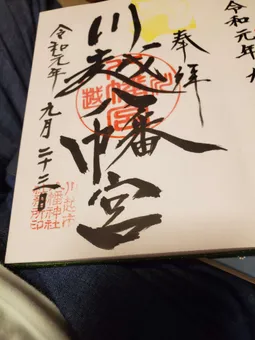 奉拝
川越八幡宮
令和元年九月二十三日
令和元年九